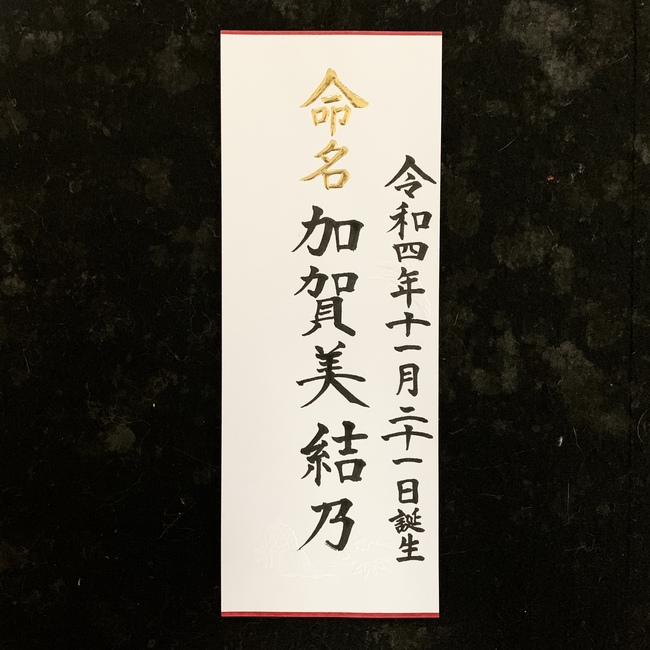 令和四年十一月二十一日誕生
命名 加賀美 結乃